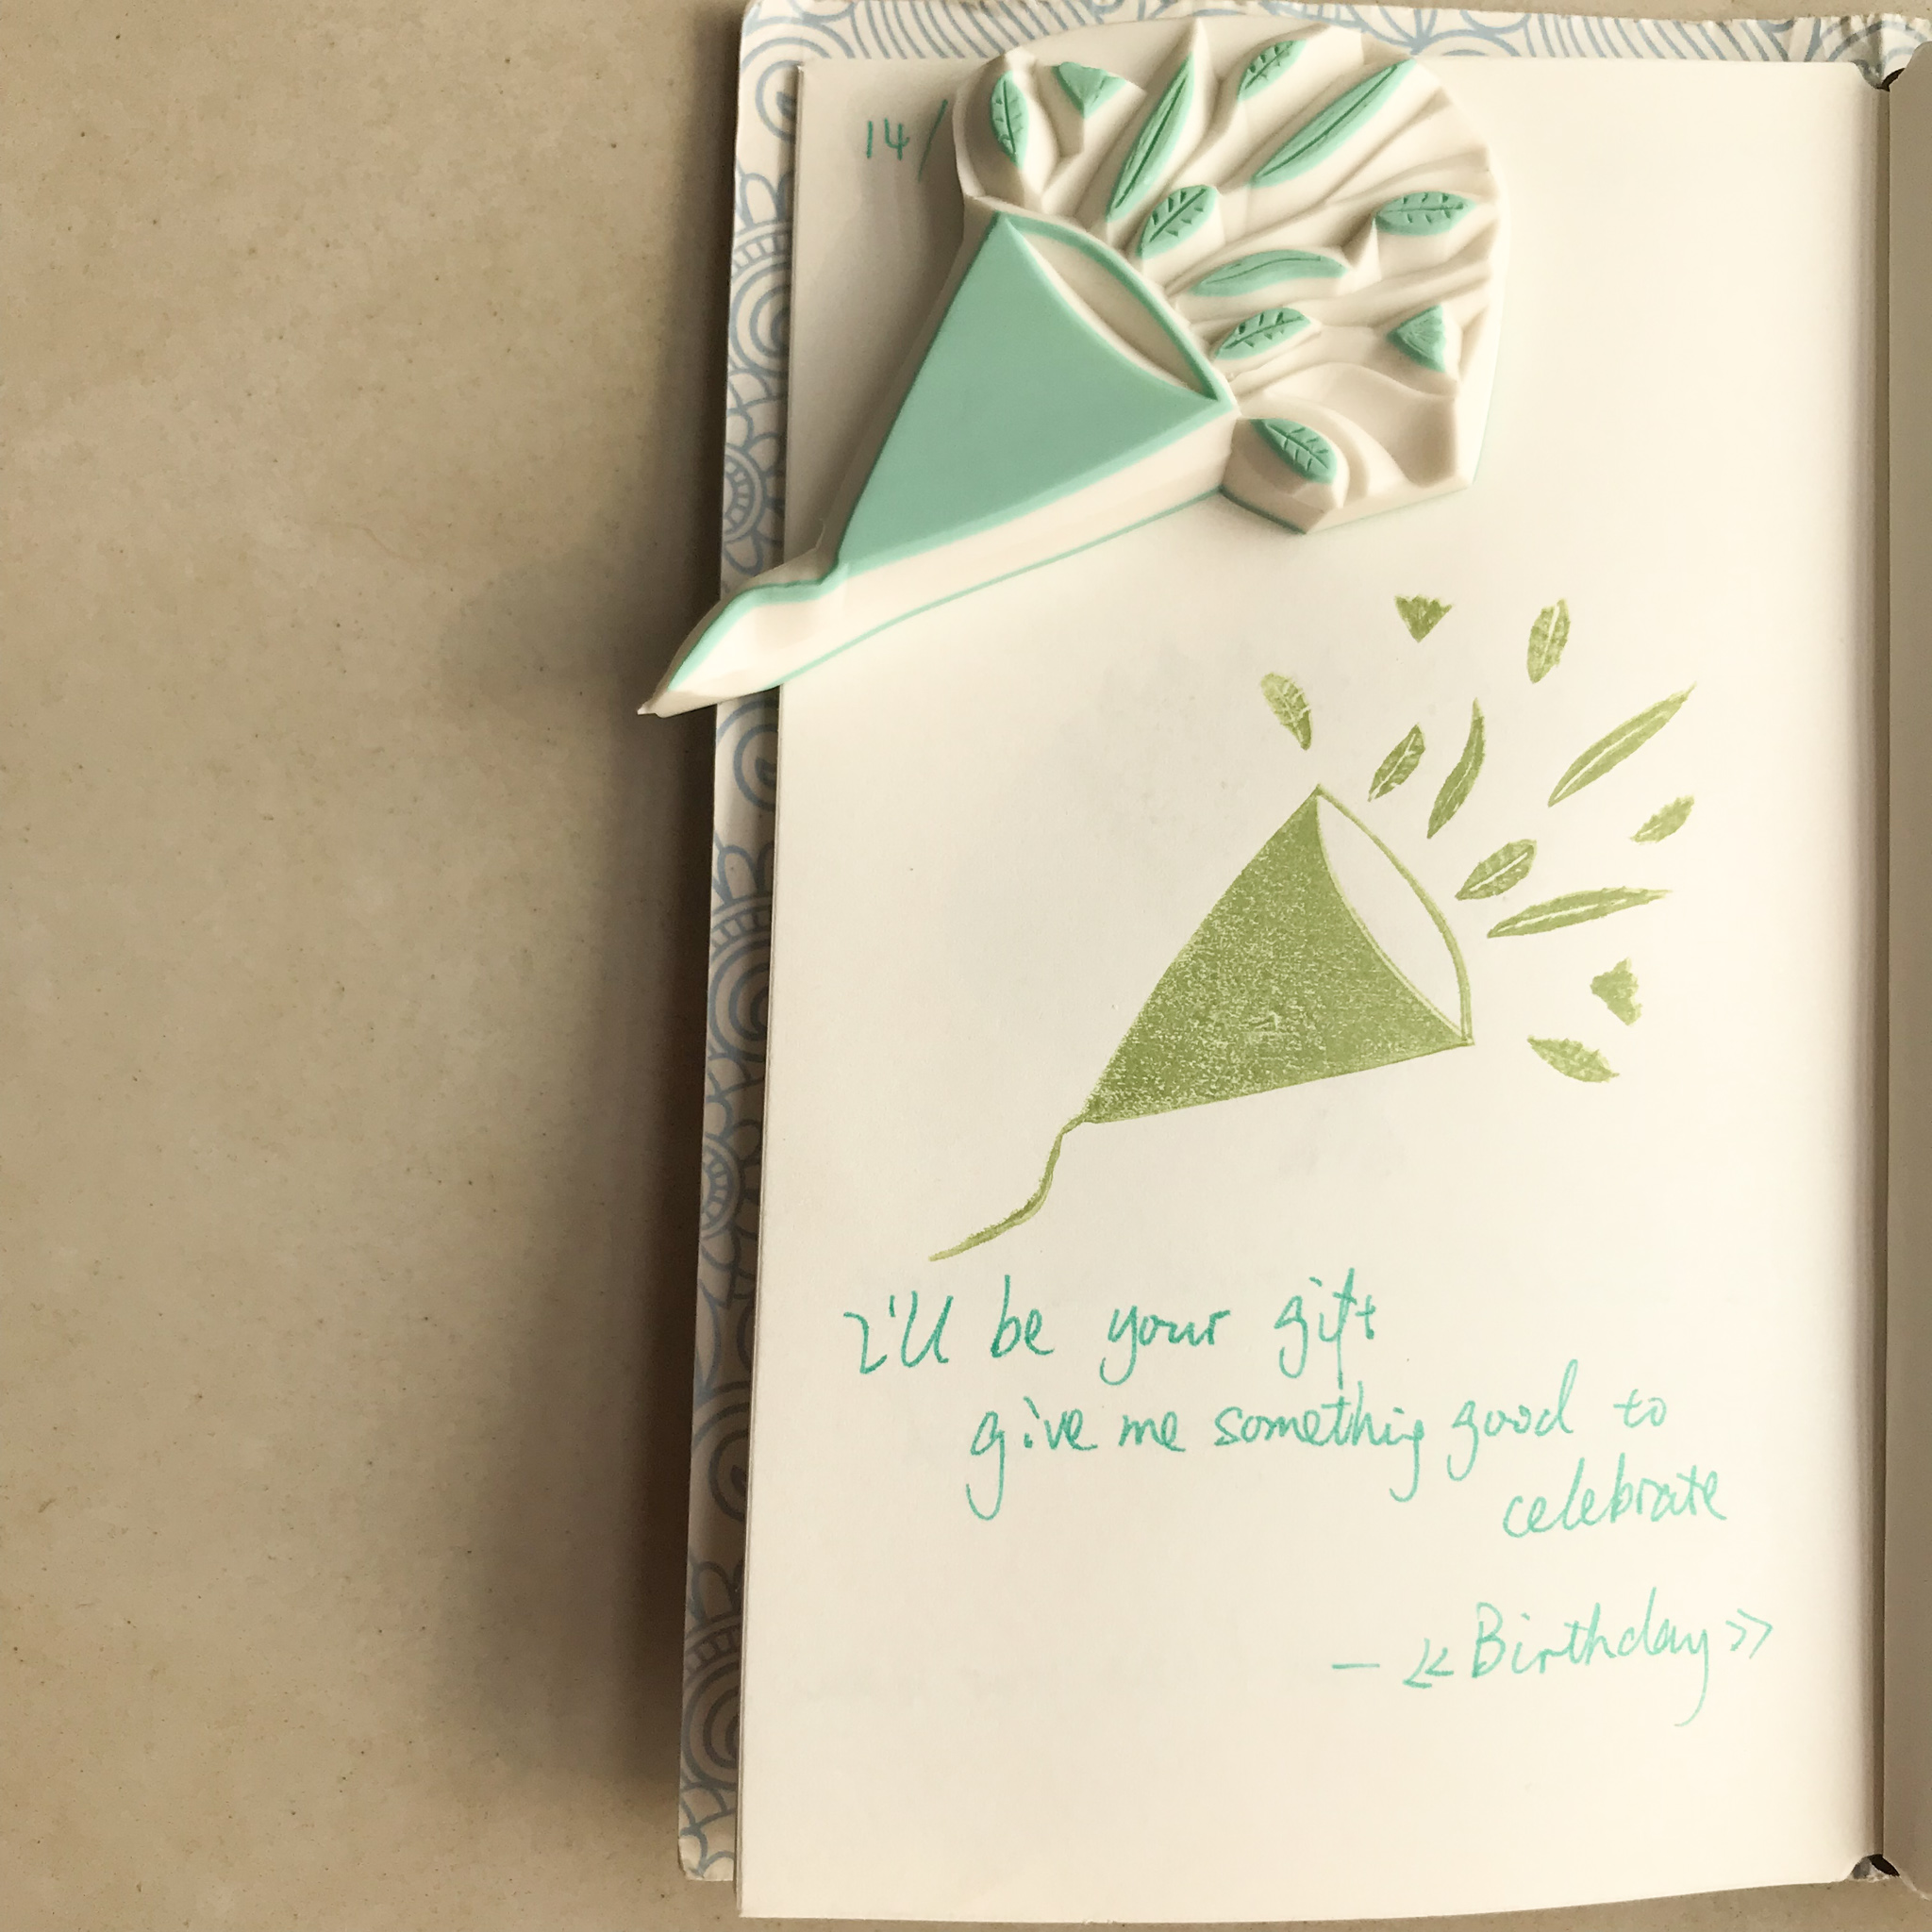 14/
I'll be your gift
give me something good to
celebrate
— 《Birthday》